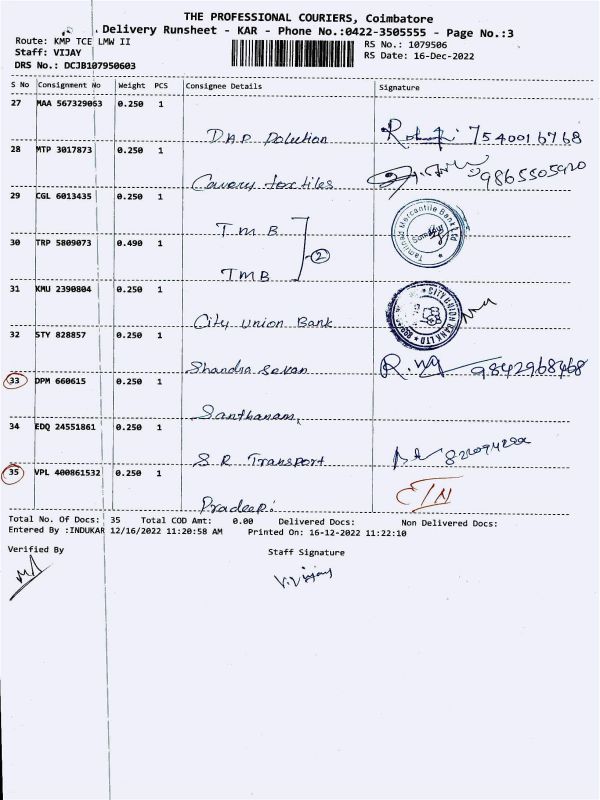 THE PROFESSIONAL COURIERS, Coimbatore
Delivery Runsheet - KAR - Phone No.:0422-3505555 - Page No.:3
Route: KMP TCE LMW II
RS No.: 1079506
Staff: VIJAY
RS Date: 16-Dec-2022
DRS No.: DCJB107950603
S No Consignment No Weight PCS Consignee Details Signature
27 MAA 567329063 0.250 1
DAP Polution 7540016768
28 MTP 3017873 0.250 1
Cauvery textiles 9865505920
29 CGL 6013435 0.250 1
TMB
Tamilnad Mercantile Bank Ltd
30 TRP 5809073 0.490 1
2
TMB
31 KMU 2390804 0.250 1
City Union Bank
CITY UNION BANK LTD
32 STY 828857 0.250 1
Shandra Sekan 9842968468
33 DPM 660615 0.250 1
Santhanam
34 EDQ 24551861 0.250 1
S R Transport
35 VPL 400861532 0.250 1
Pradeep
Total No. Of Docs: 35 Total COD Amt: 0.00 Delivered Docs: Non Delivered Docs:
Entered By :INDUKAR 12/16/2022 11:20:58 AM Printed On: 16-12-2022 11:22:10
Verified By
Staff Signature
V.Vijay